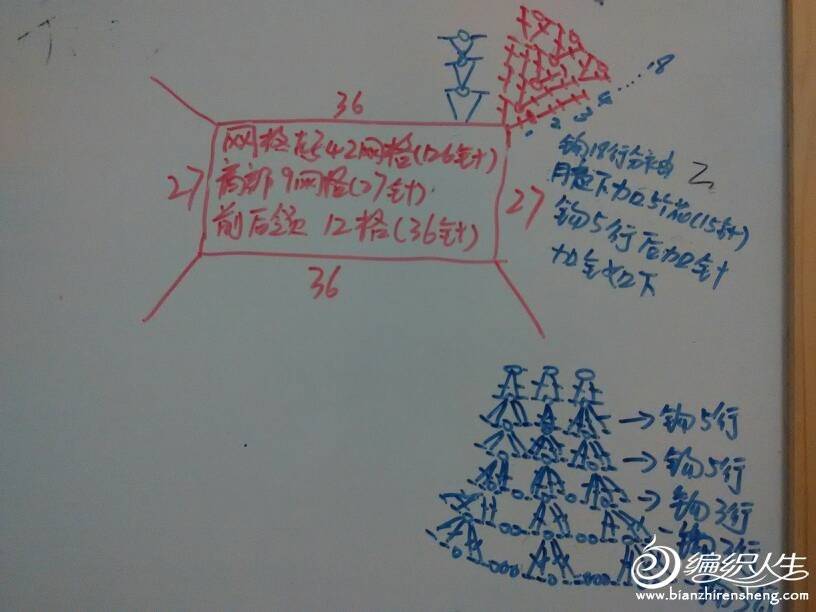 36
27
网格起42网格(126针)
肩部9网格(27针)
前后领 12格(36针)
27
36
1 2 3 4 ……18
钩18行分袖
腋下加5个花(15针)
钩5行后加针
加针如下
→钩5行
→钩5行
→钩3行
编织人生
www.bianzhirensheng.com